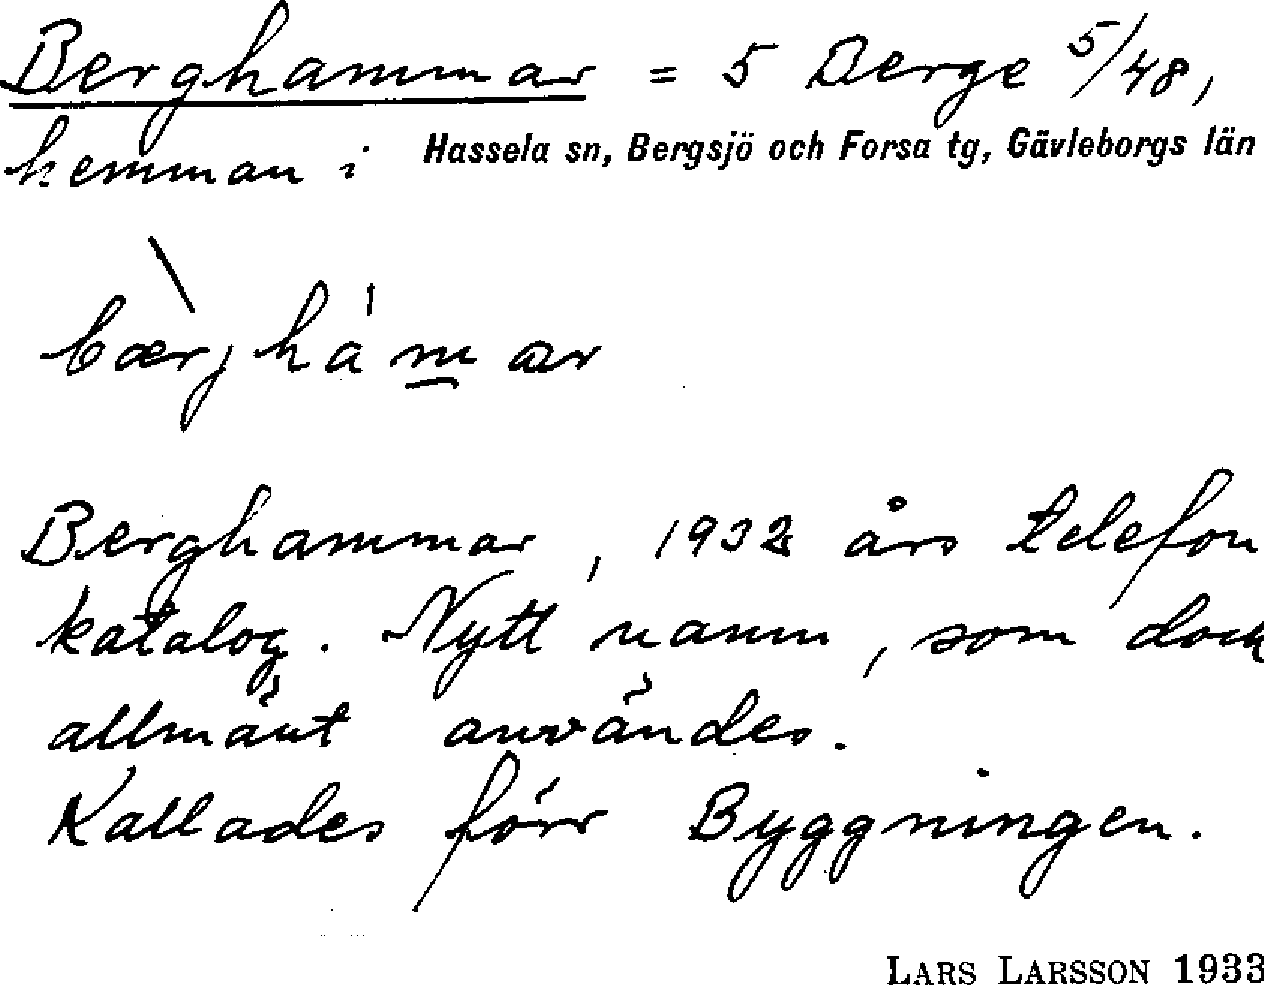 Berghammar = 5 Berge 5/48,
hemman i Hassela sn, Bergsjö och Forsa tg, Gävleborgs län
bær̀jhám̲ar
Berghammar, 1932 års telefon
katalog. Nytt namn, som dock
allmänt användes.
Kallades förr Byggningen.
LARS LARSSON 1933